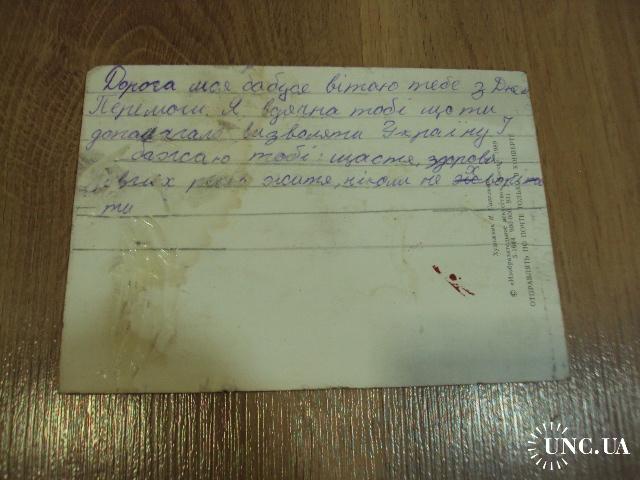 Дорога моя бабусе вітаю тебе з Днем
Перемоги. Я вдячна тобі що ти
допомагала визволяти Україну І
бажаю тобі: щастя, здоровя
всіх житя, ніколи не хворіти
ти
Художник И.
© «Изобразительное искусство». 1989
ОТПРАВЛЯТЬ ПО ПОЧТЕ ТОЛЬКО В КОНВЕРТЕ
UNC.UA